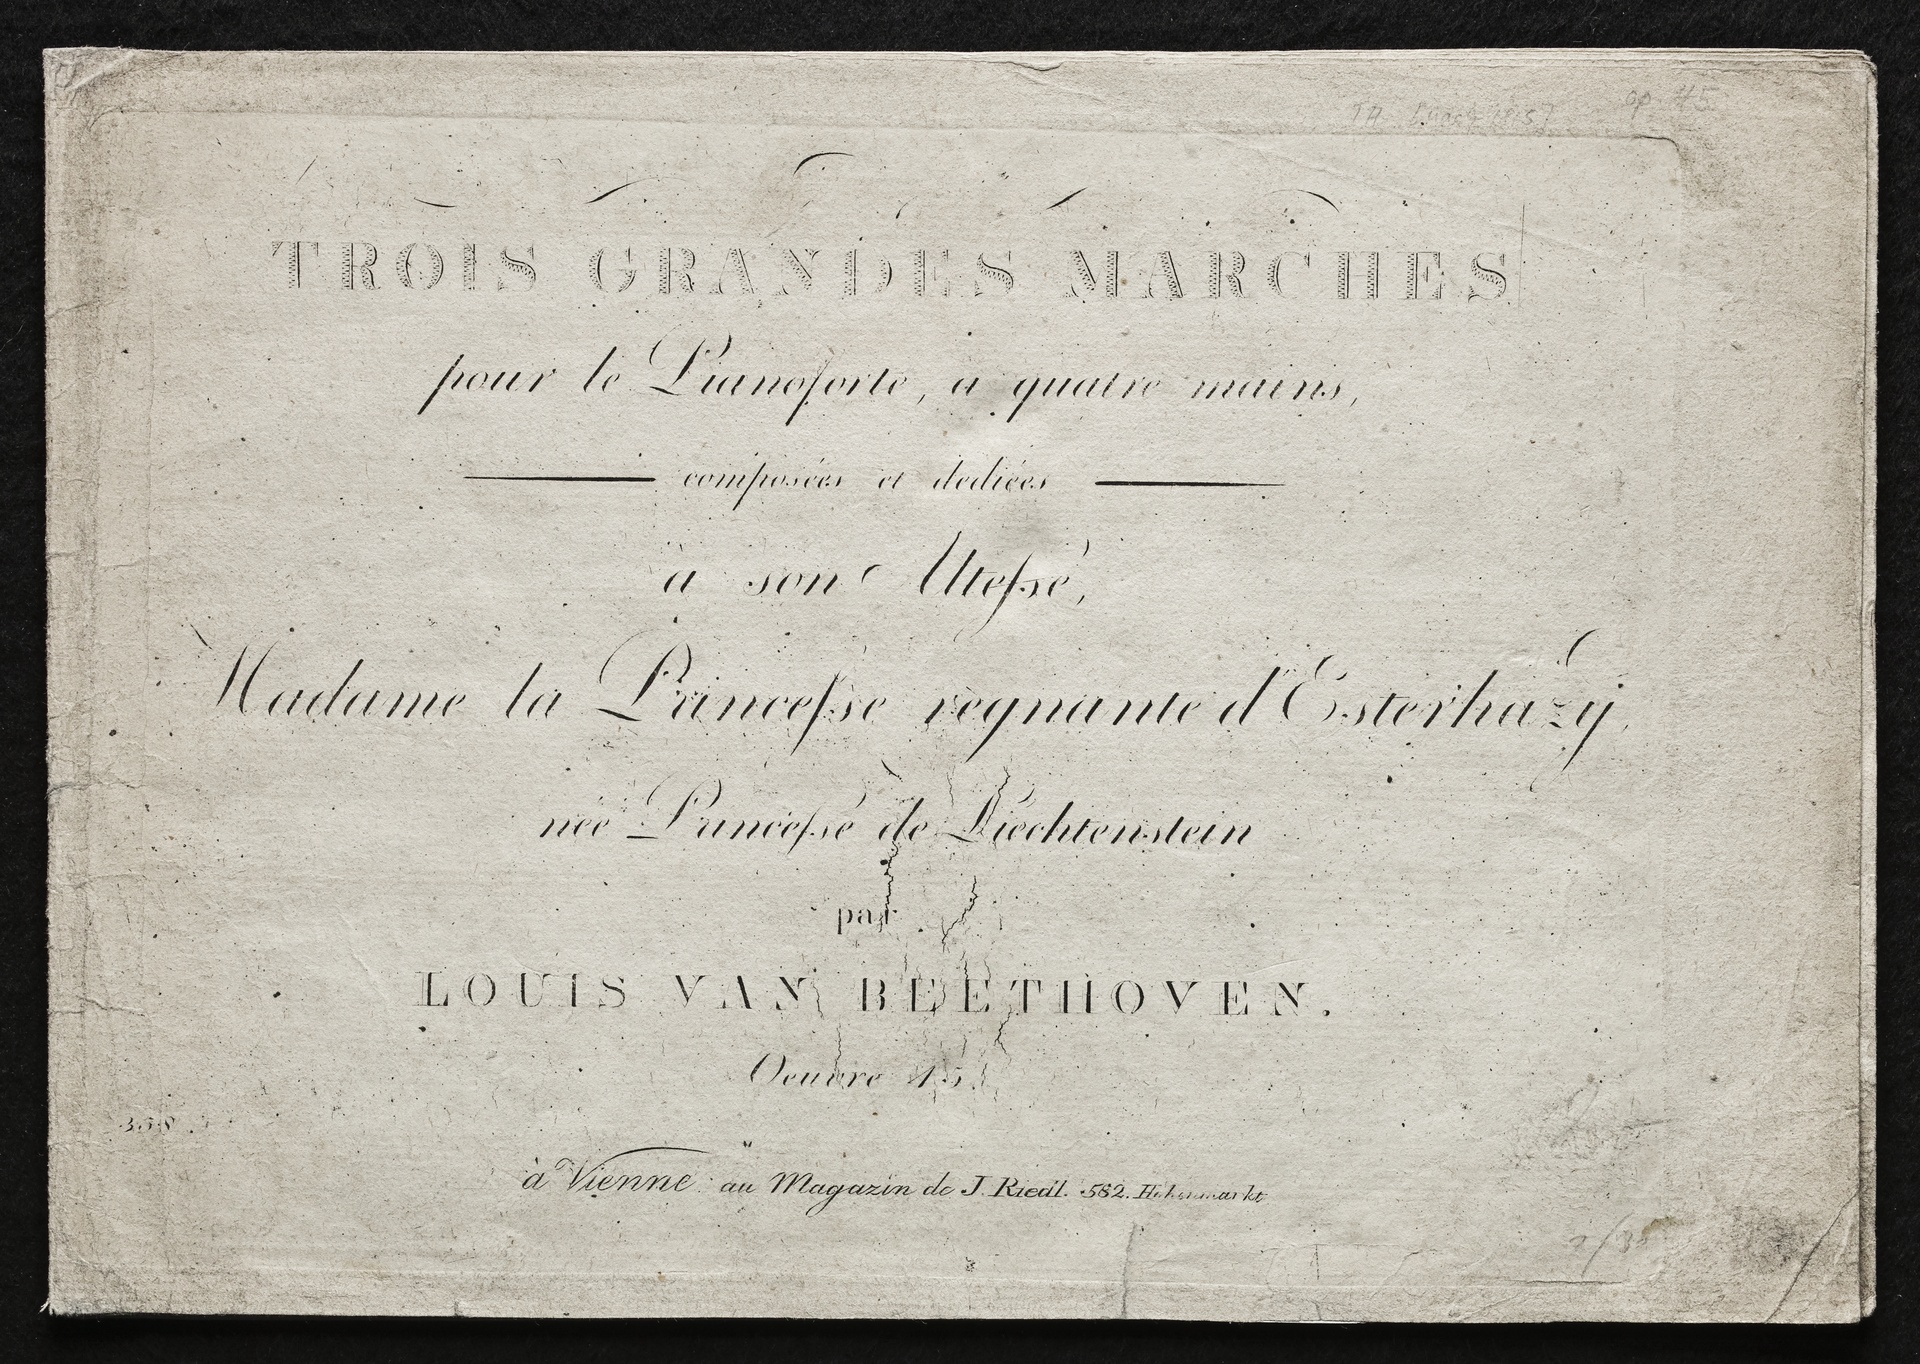 op. 45
TROIS GRANDES MARCHES
pour le Pianoforte, a quatre mains,
composées et dediées
à son Altesse,
Madame la Princesse regnante d'Esterhazÿ,
née Princesse de Liechtenstein
par
LOUIS VAN BEETHOVEN.
Oeuvre 45.
358.
à Vienne au Magazin de J. Riedl. 582. Hohenmarkt